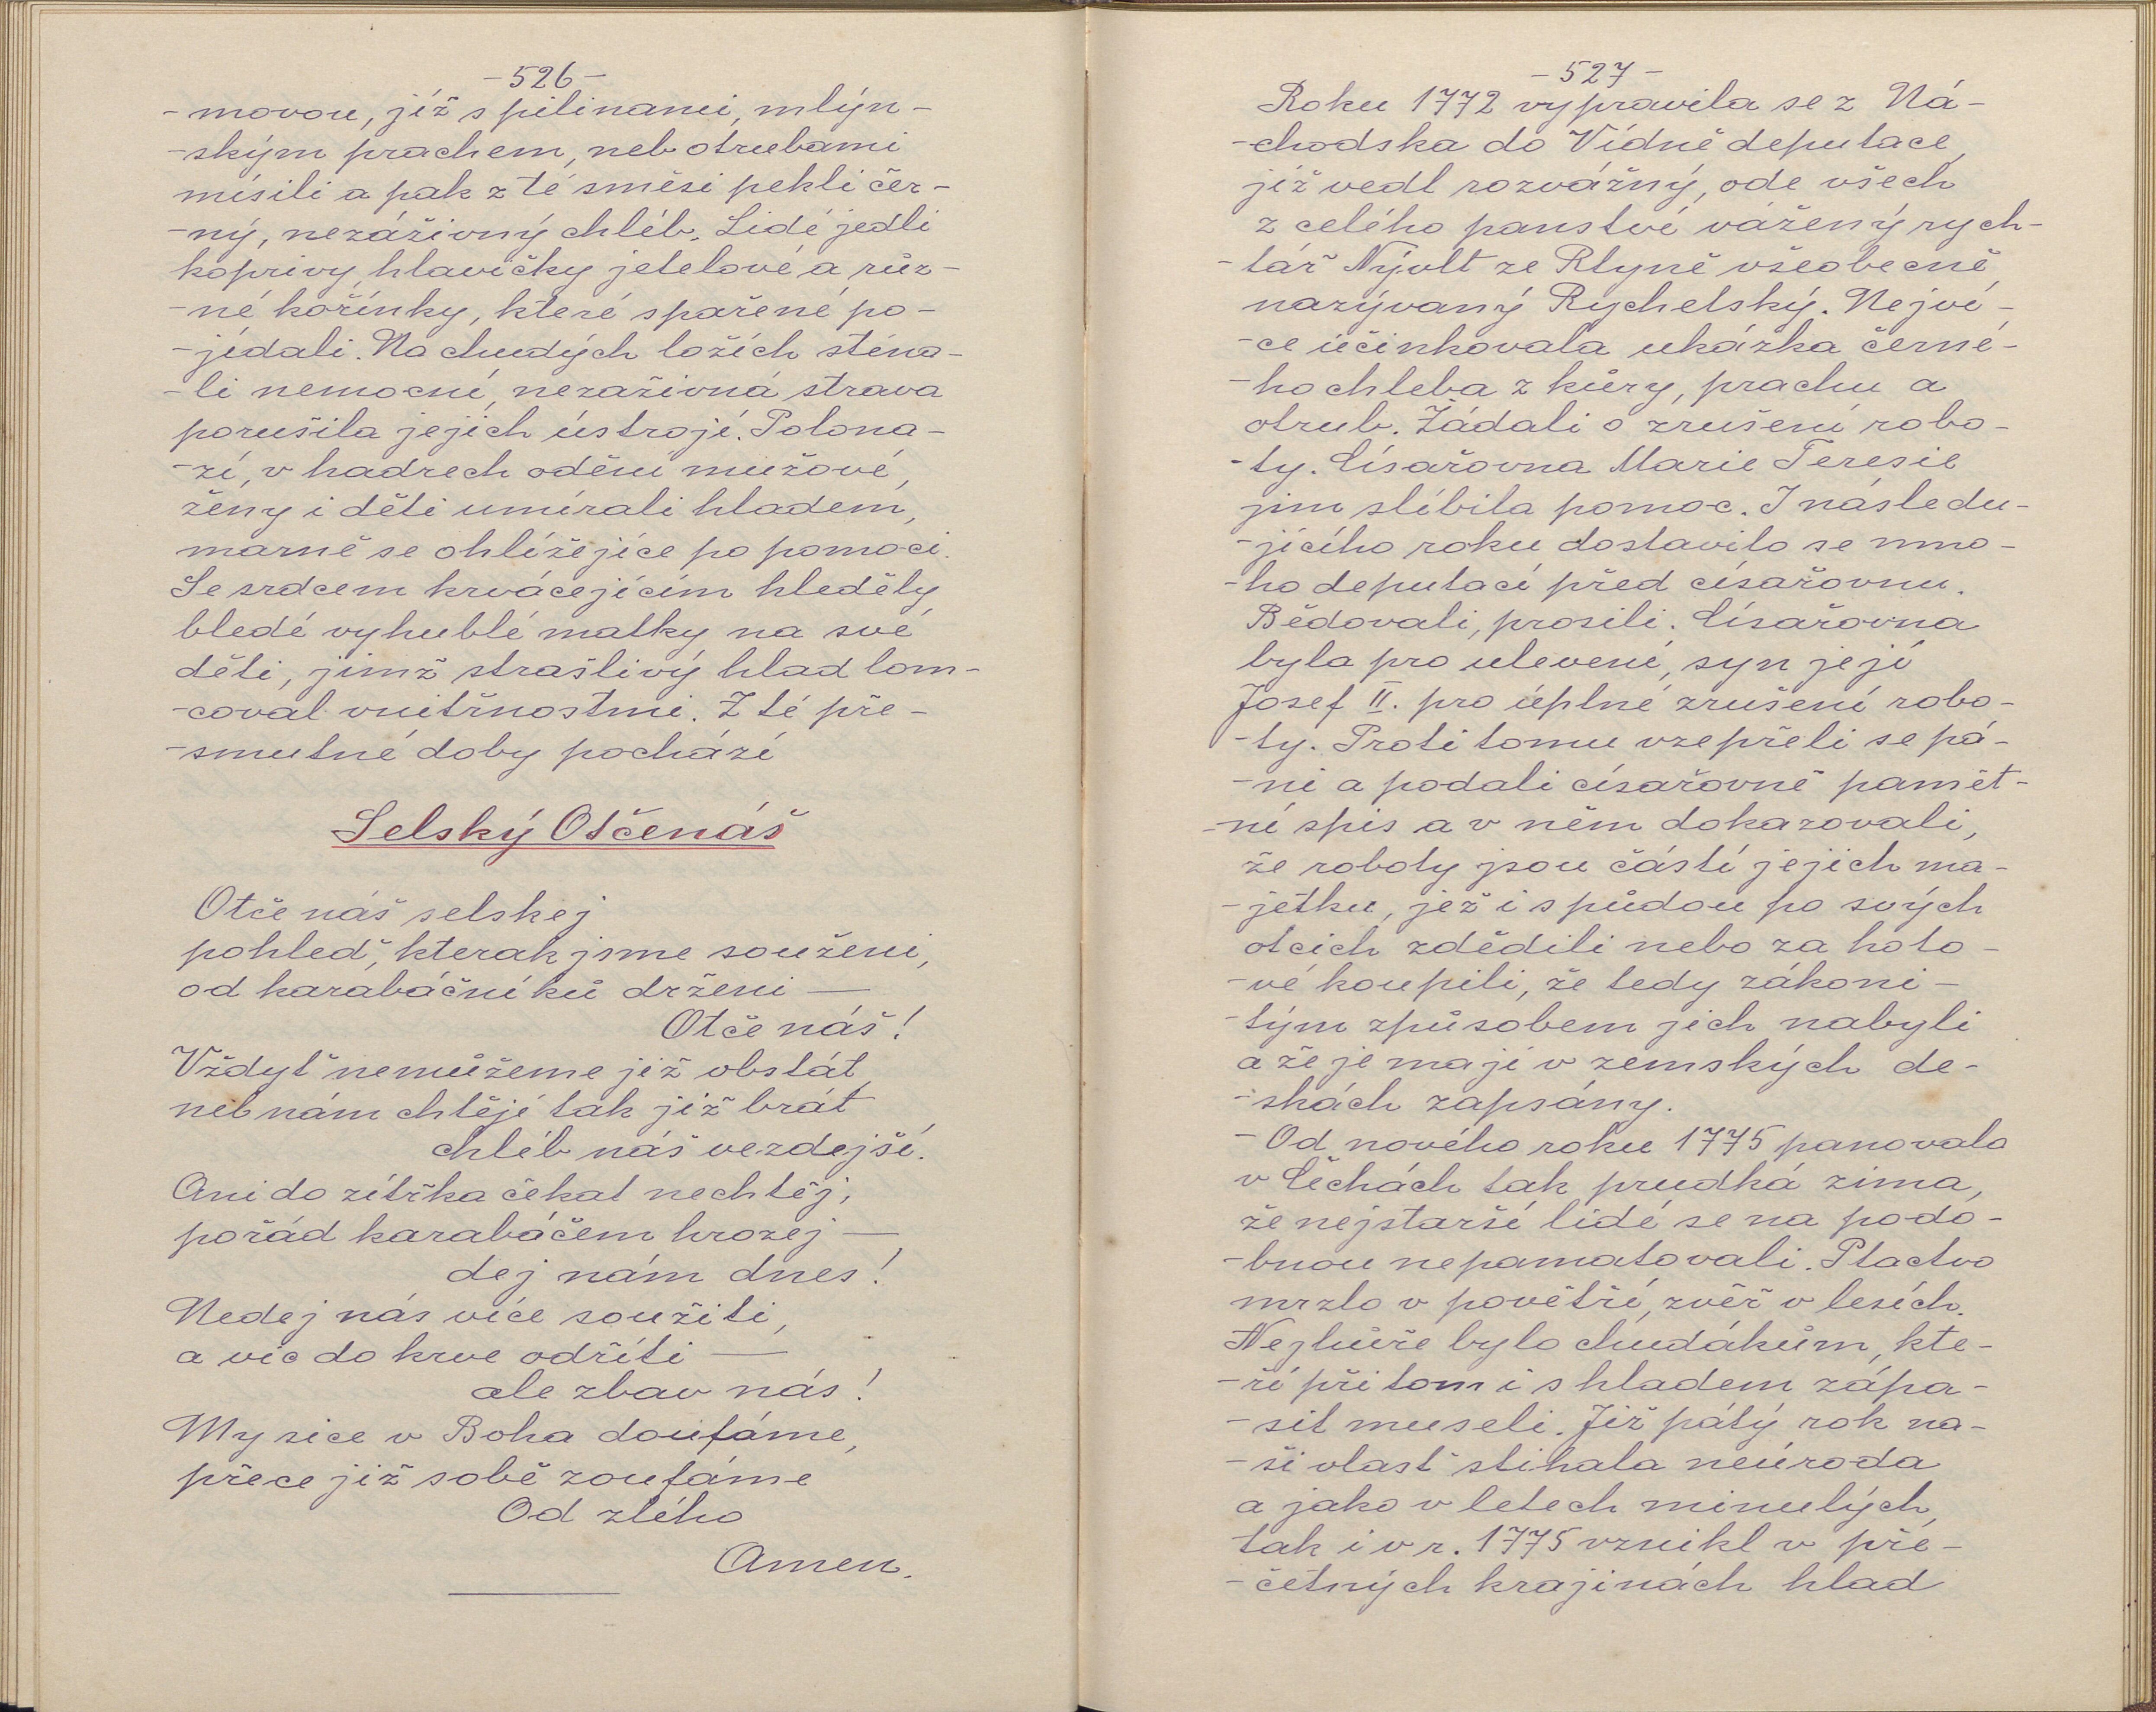 -526-
-movou, jíž s pilinami, mlýn-
-ským prachem, neb otrubami
mísili a pak z té směsi pekli čer-
-ný, nezáživný chléb. Lidé jedli
kopřivy, hlavičky jetelové a růz-
-né kořínky, které spařené po-
-jídali. Na chudých ložích sténa-
-li nemocní, nezaživná strava
porušila jejich ústrojí. Polona-
-zí, v hadrech oděni mužové,
ženy i děti umírali hladem,
marně se ohlížejíce po pomoci.
Se srdcem krvácejícím hleděly
bledé vyhublé matky na své
děti, jimž strašlivý hlad lom-
-coval vnitřnostmi. Z té pře-
-smutné doby pochází
Selský Otčenáš
Otče náš selskej
pohleď, kterak jsme souženi,
od karabáčníků drženi —
Otče náš!
Vždyť nemůžeme již obstát,
neb nám chtějí tak již brát
chléb náš vezdejší.
Ani do zítřka čekat nechtěj,
pořád karabáčem hrozej —
dej nám dnes!
Nedej nás více soužiti,
a víc do krve odříti —
ale zbav nás!
My sice v Boha doufáme,
přece již sobě zoufáme
Od zlého
Amen.
-527-
Roku 1772 vypravila se z Ná-
-chodska do Vídně deputace,
již vedl rozvážný, ode všech
z celého panství vážený rych-
-tář Nývlt ze Rtyně všeobecně
nazývaný Rychelský. Nejví-
-ce účinkovala ukázka černé-
-ho chleba z kůry, prachu a
otrub. Žádali o zrušení robo-
-ty. Císařovna Marie Teresie
jim slíbila pomoc. I následu-
-jícího roku dostavilo se mno-
-ho deputací před císařovnu.
Bědovali, prosili. Císařovna
byla pro ulevení, syn její
Josef II. pro úplné zrušení robo-
-ty. Proti tomu vzepřeli se pá-
-ni a podali císařovně pamět-
-ní spis a v něm dokazovali,
že roboty jsou částí jejich ma-
-jetku, jež i s půdou po svých
otcích zdědili nebo za hoto-
-vé koupili, že tedy zákoni-
-tým způsobem jich nabyli
a že je mají v zemských de-
-skách zapsány.
- Od nového roku 1775 panovala
v Čechách tak prudká zima,
že nejstarší lidé se na podo-
-bnou nepamatovali. Ptactvo
mrzlo v povětří, zvěř v lesích.
Nejhůře bylo chudákům, kte-
-ří při tom i s hladem zápa-
-sit museli. Již pátý rok na-
-ši vlasť stihala neúroda
a jako v letech minulých,
tak i v r. 1775 vznikl v pře-
-četných krajinách hlad